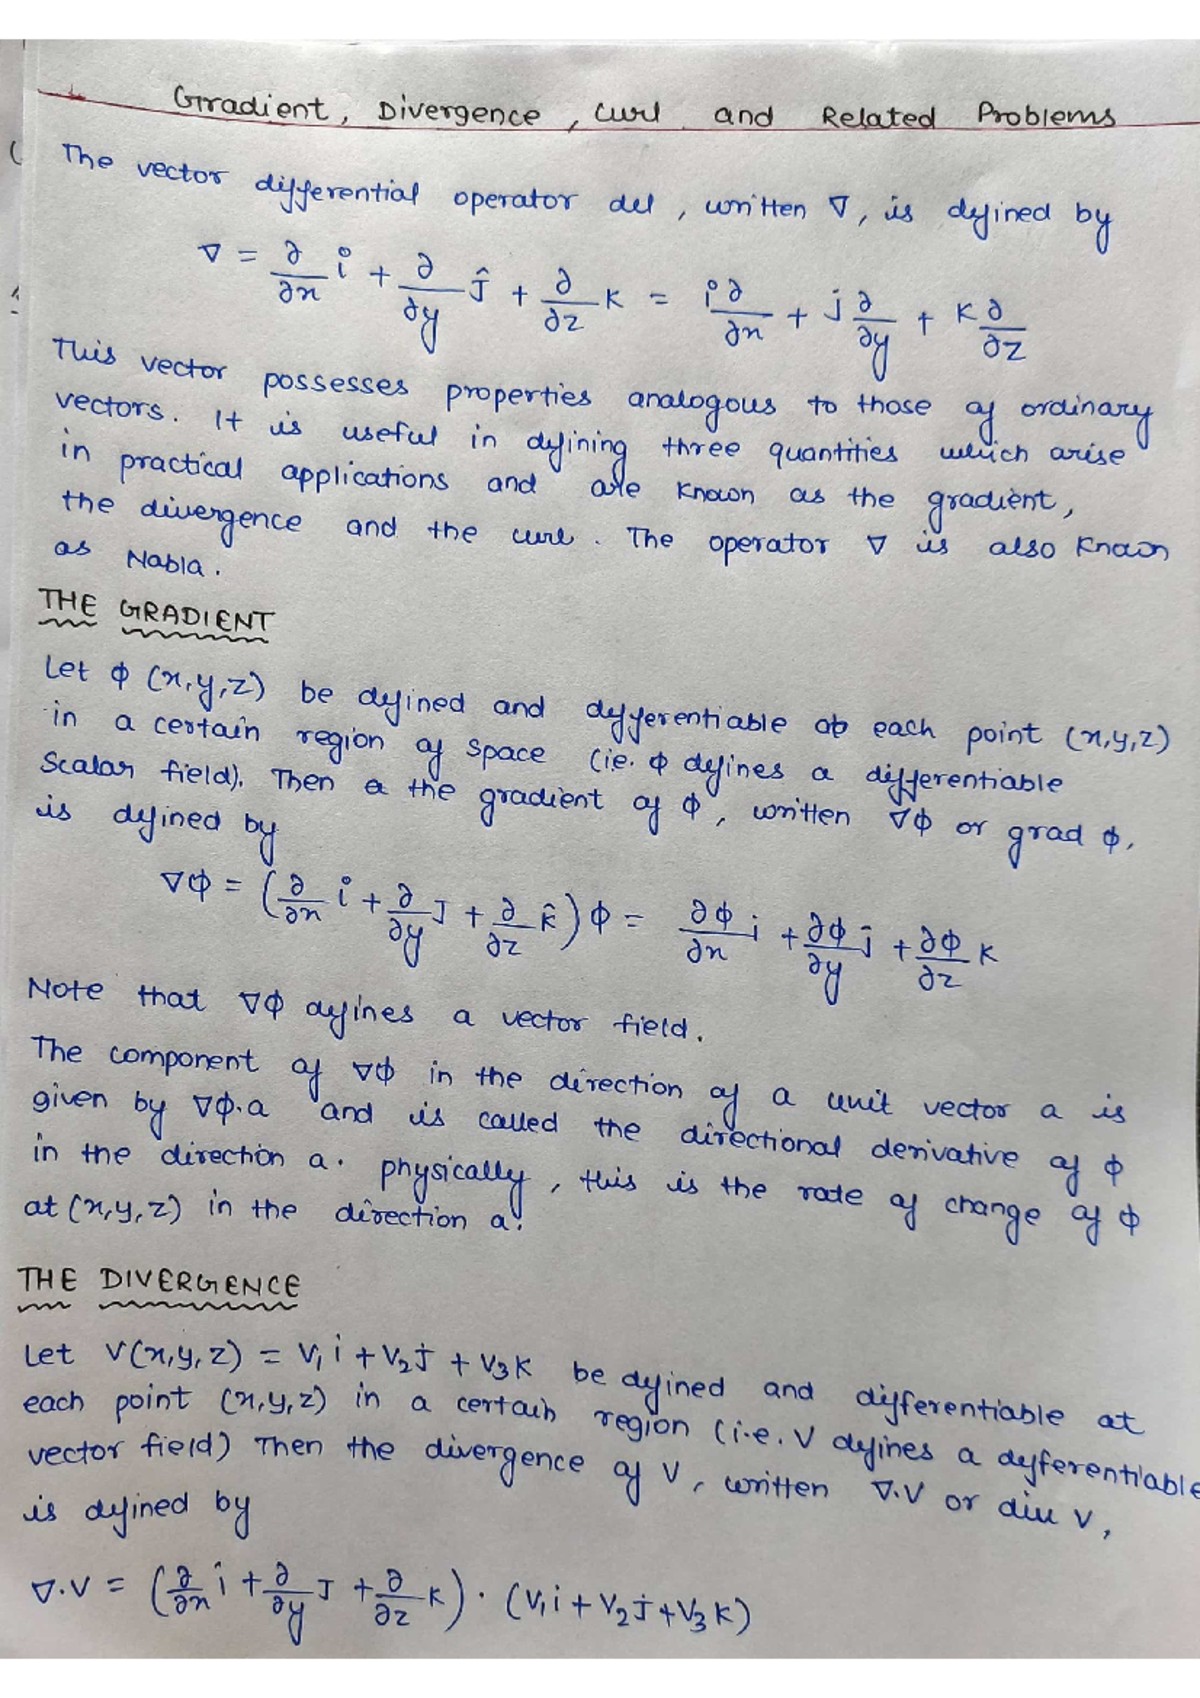 Gradient, Divergence, Curl and Related Problems
The vector differential operator del, written ∇, is defined by
∇ = ∂/∂x i + ∂/∂y ĵ + ∂/∂z k = i ∂/∂x + j ∂/∂y + k ∂/∂z
This vector possesses properties analogous to those of ordinary
vectors. It is useful in defining three quantities which arise
in practical applications and are known as the gradient,
the divergence and the curl. The operator ∇ is also known
as Nabla.
THE GRADIENT
Let ϕ (x,y,z) be defined and differentiable at each point (x,y,z)
in a certain region of space (ie. ϕ defines a differentiable
Scalar field). Then the gradient of ϕ, written ∇ϕ or grad ϕ,
is defined by
∇ϕ = (∂/∂x i + ∂/∂y J + ∂/∂z k̂) ϕ = ∂ϕ/∂x i + ∂ϕ/∂y j + ∂ϕ/∂z k
Note that ∇ϕ defines a vector field.
The component of ∇ϕ in the direction of a unit vector a is
given by ∇ϕ.a and is called the directional derivative of ϕ
in the direction a. physically, this is the rate of change of ϕ
at (x,y,z) in the direction a.
THE DIVERGENCE
Let V(x,y,z) = V₁i + V₂j + V₃k be defined and differentiable at
each point (x,y,z) in a certain region (i.e. V defines a differentiable
vector field) Then the divergence of V, written ∇.V or div V,
is defined by
∇.V = (∂/∂x î + ∂/∂y J + ∂/∂z k) . (V₁i + V₂j + V₃k)